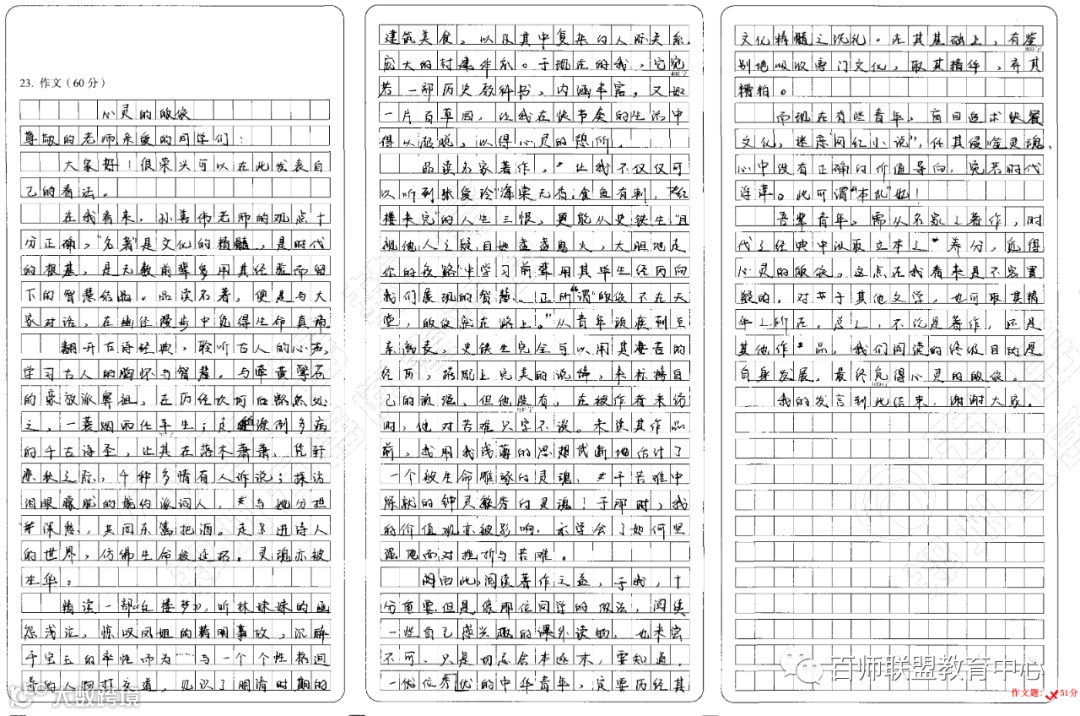 23. 作文(60分)
心灵的皈依
尊敬的老师亲爱的同学们:
大家好!很荣头可以在此发表自
己的看法。
在我看来,孙善伟老师的观点十
分正确,"名著"是文化的精髓,是时代
的根基,是无数前辈多用其经历而留
下的智慧结晶。品读名著,便是与大
家对话,在幽径漫步中觅得生命真谛
翻开古诗经典,聆听古人的心声,
学习古人的胸怀与智慧。与
的豪放派鼻祖,在历经坎坷
之,一蓑烟雨任平生;多病
的千古诗圣,让其在落木萧萧,
之际,千种多情有人诉说;探访
泪眼朦胧的婉约派词人,与她分担
深愁,共同东篱把酒。走进诗人
的世界,仿佛生命被延拓。灵魂亦被
生华。
精读一部《红楼梦》,听林妹妹的幽
怨浅泣,惊叹凤姐的精明事故,沉醉
于宝玉的率性而为……与一个个性格迥
异的人物打交道,见识了明清时期的
建筑美食,以及其中复杂的人际关系,
宏大的封建体系。于现在的我,宛宛
若一部历史教科书,内涵丰富,又如
一片百草园,让我在快节奏的生活中
得以超脱,以得心灵的憩所。
400字
品读名家著作,让我不仅仅可
以听到张爱玲"海棠无香,鲥鱼有刺,红
楼未完"的人生三恨,更能从史铁生"且
视他人之疑目如盏盏鬼火,大胆地走
你的夜路"中学习前辈用其毕生经历向
我们展现的智慧。正所谓"皈依不在天
堂,皈依就在路上。"从青年该疾到至
亲离丧,史铁生完全可以用其凄苦的
经历,搭配上完美的说绎,来标榜自
己的顽强,但他没有,在被作者采访
时,他对苦难只字不谈。未读其作品
前,我用我浅薄的思想武断地估计了
一个被生命雕琢的灵魂,于苦难中
练就的钟灵毓秀的灵魂!于那时,我
的价值观亦被影响,亦学会了如何坚
强地面对挫折与苦难。
600字
阅因此,阅读著作之益,于我,十
分重要但是像那位同学的做法,阅读
一些自己感兴趣的课外读物,也未尝
不可,只是切忌舍本逐末,要知道,
一做位优秀的中华青年,定要历经其
文化精髓之洗礼。在其基础上,有鉴
别地吸收专门文化,取其精华,弃其
糟粕。
800字
而现在有些青年,盲目追求快展
文化,迷恋"网红小说",任其侵噬灵魂,
心中没有正确的价值导向,宛若时代
浮萍。此可谓"本乱"也!
吾辈青年,需从名家之著作,时
代之经典中汲取立本之养分,觅得
心灵的皈依。这点在我看来是不容置
疑的,对于其他文学,也可取其精
华之所在。总之,不论是著作,还是
其他作品,我们阅读的终级目的是
自身发展,最终觅得心灵的皈依。
我的发言到此结束,谢谢大家。
百师联盟教育中心
大数跨境
作文题: 51分